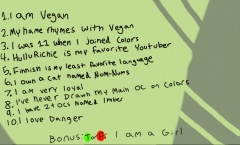 1. I am Vegan
2. My name rhymes with Vegan
3. I was 11 when I joined Colors
4. HulluRichie is my favorite Youtuber
5. Finnish is my least favorite language
6. I own a Cat named Nom-Noms
7. I am very loyal
8. I've Never Drawn my Main OC on Colors
9. I have 2+ OCs Named Imber
10. I love Danger
Bonus: T F: I am a Girl